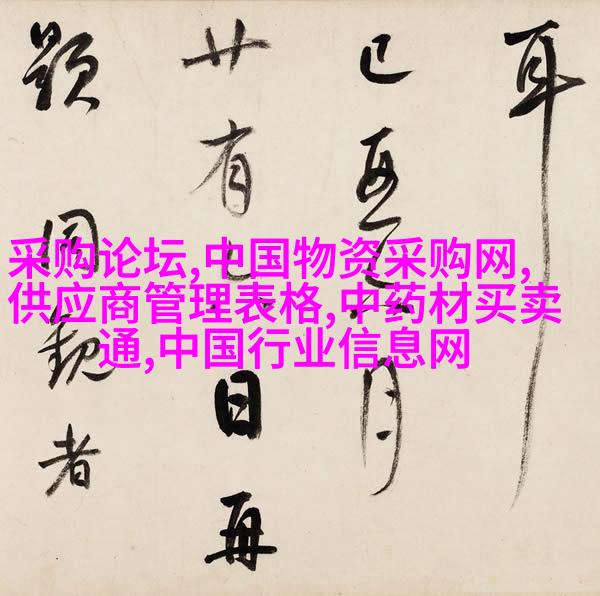 采购论坛,中国物资采购网,
供应商管理表格,中药材买卖
通,中国行业信息网
耳
已月
廿有日再
題同觀者